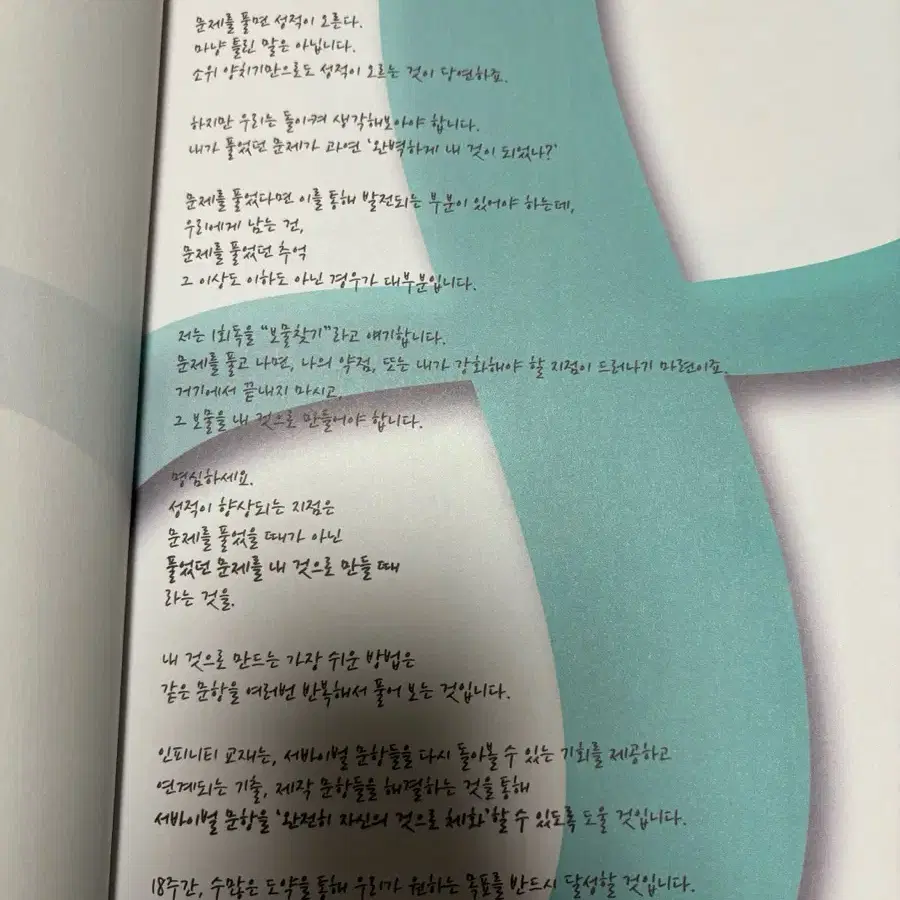 문제를 풀면 성적이 오른다.
마냥 틀린 말은 아닙니다.
소위 양치기만으로도 성적이 오르는 것이 당연하죠.
하지만 우리는 돌이켜 생각해보아야 합니다.
내가 풀었던 문제가 과연 '완벽하게 내 것이 되었나?'
문제를 풀었다면 이를 통해 발전되는 부분이 있어야 하는데,
우리에게 남는 건,
문제를 풀었던 추억
그 이상도 이하도 아닌 경우가 대부분입니다.
저는 1회독을 "보물찾기"라고 얘기합니다.
문제를 풀고 나면, 나의 약점, 또는 내가 강화해야 할 지점이 드러나기 마련이죠.
거기에서 끝내지 마시고,
그 보물을 내 것으로 만들어야 합니다.
명심하세요.
성적이 향상되는 지점은
문제를 풀었을 때가 아닌
풀었던 문제를 내 것으로 만들 때
라는 것을.
내 것으로 만드는 가장 쉬운 방법은
같은 문항을 여러번 반복해서 풀어 보는 것입니다.
인피니티 교재는, 서바이벌 문항들을 다시 돌아볼 수 있는 기회를 제공하고
연계되는 기출, 제작 문항들을 해결하는 것을 통해
서바이벌 문항을 '완전히 자신의 것으로 체화'할 수 있도록 도울 것입니다.
18주간, 수많은 도약을 통해 우리가 원하는 목표를 반드시 달성할 것입니다.